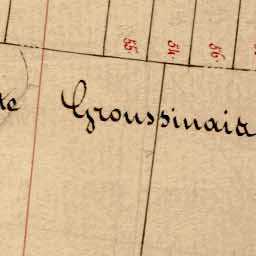 55 54 56
te Groussinaite